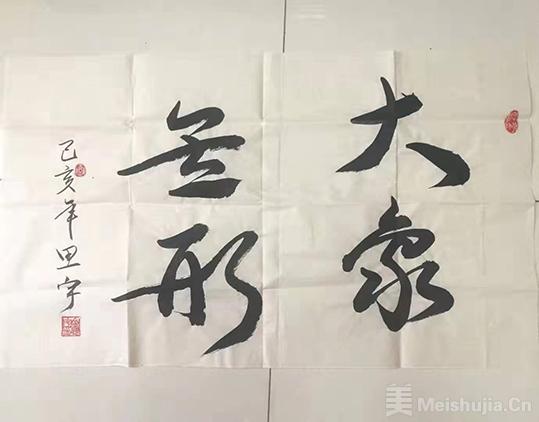 大象
無形
己亥年田宇
美 Meishujia.Cn